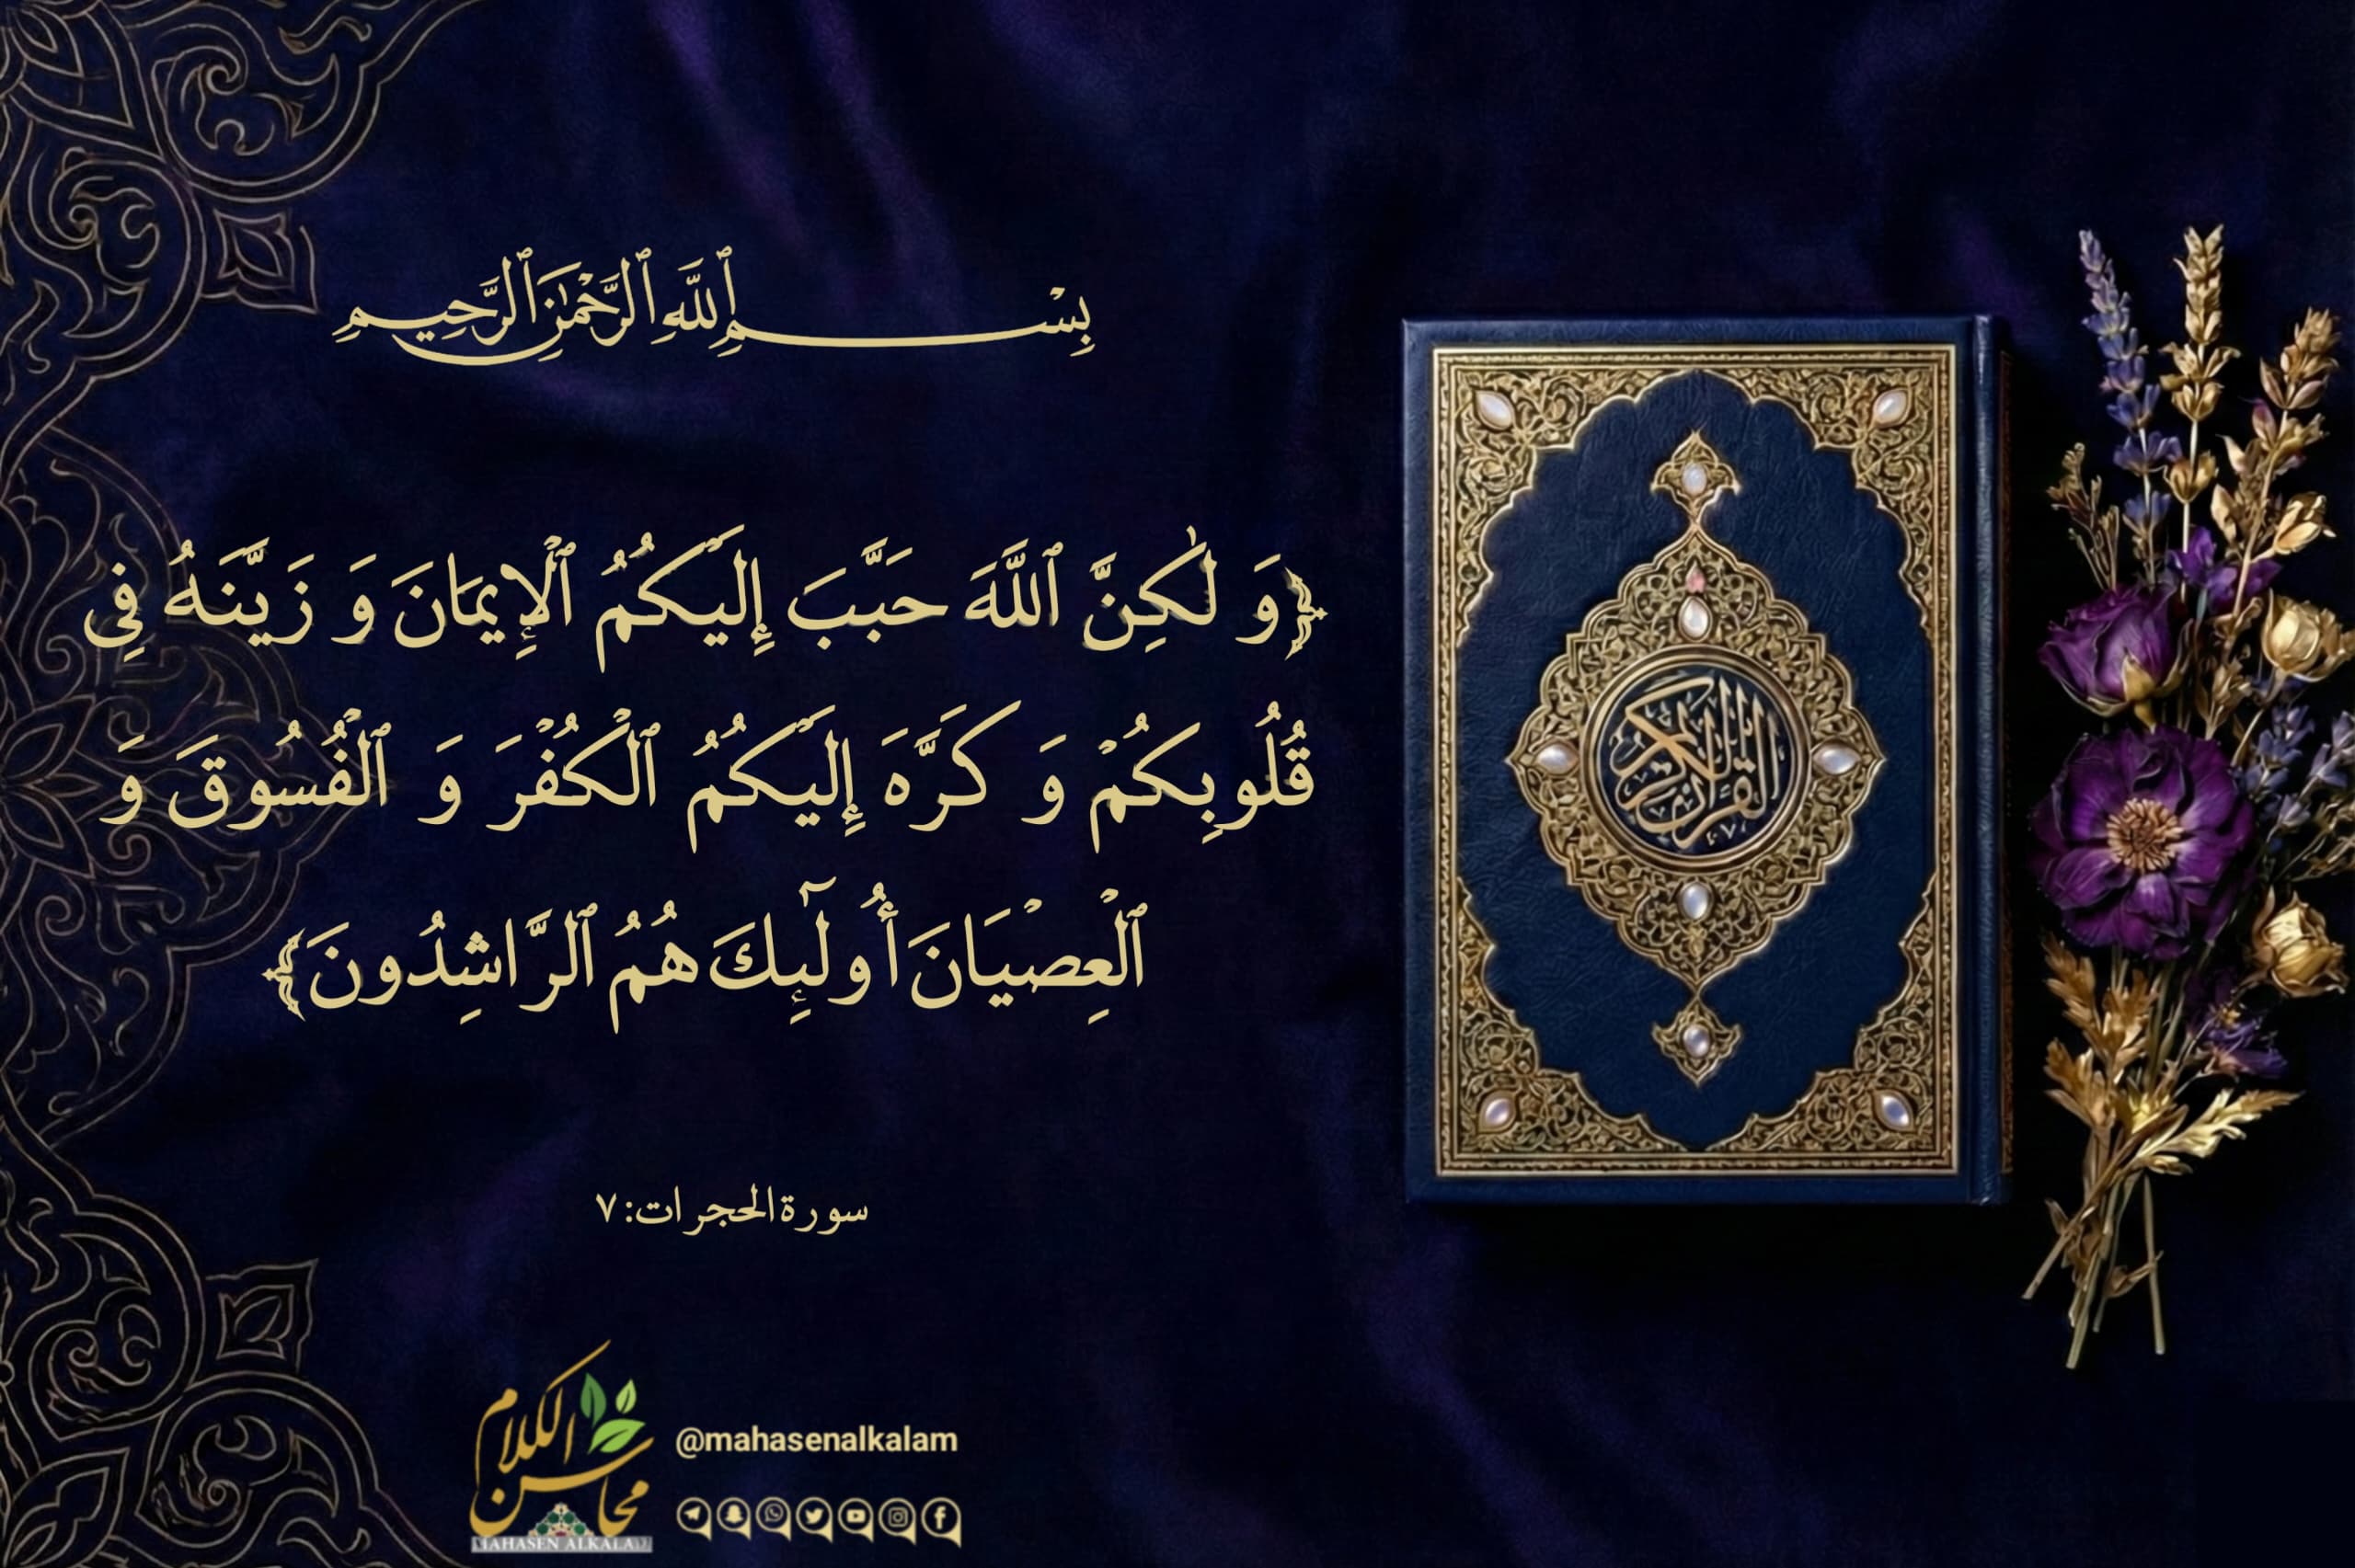 بِسْمِ ٱللَّهِ ٱلرَّحْمَٰنِ ٱلرَّحِيمِ
﴿وَ لَٰكِنَّ ٱللَّهَ حَبَّبَ إِلَيْكُمُ ٱلْإِيمَانَ وَ زَيَّنَهُ فِي
قُلُوبِكُمْ وَ كَرَّهَ إِلَيْكُمُ ٱلْكُفْرَ وَ ٱلْفُسُوقَ وَ
ٱلْعِصْيَانَ أُولَٰٓئِكَ هُمُ ٱلرَّاشِدُونَ﴾
سورة الحجرات: ٧
القرآن الكريم
محاسن الكلام
MAHASEN ALKALAM
@mahasenalkalam